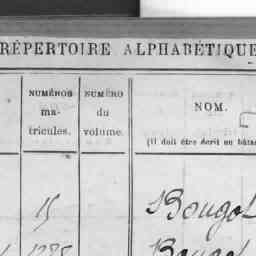 RÉPERTOIRE ALPHABÉTIQUE
NUMÉROS
ma-
tricules.
NUMÉRO
du
volume.
NOM.
(Il doit être écrit en bâta
15
Bougot
1288
Bougot